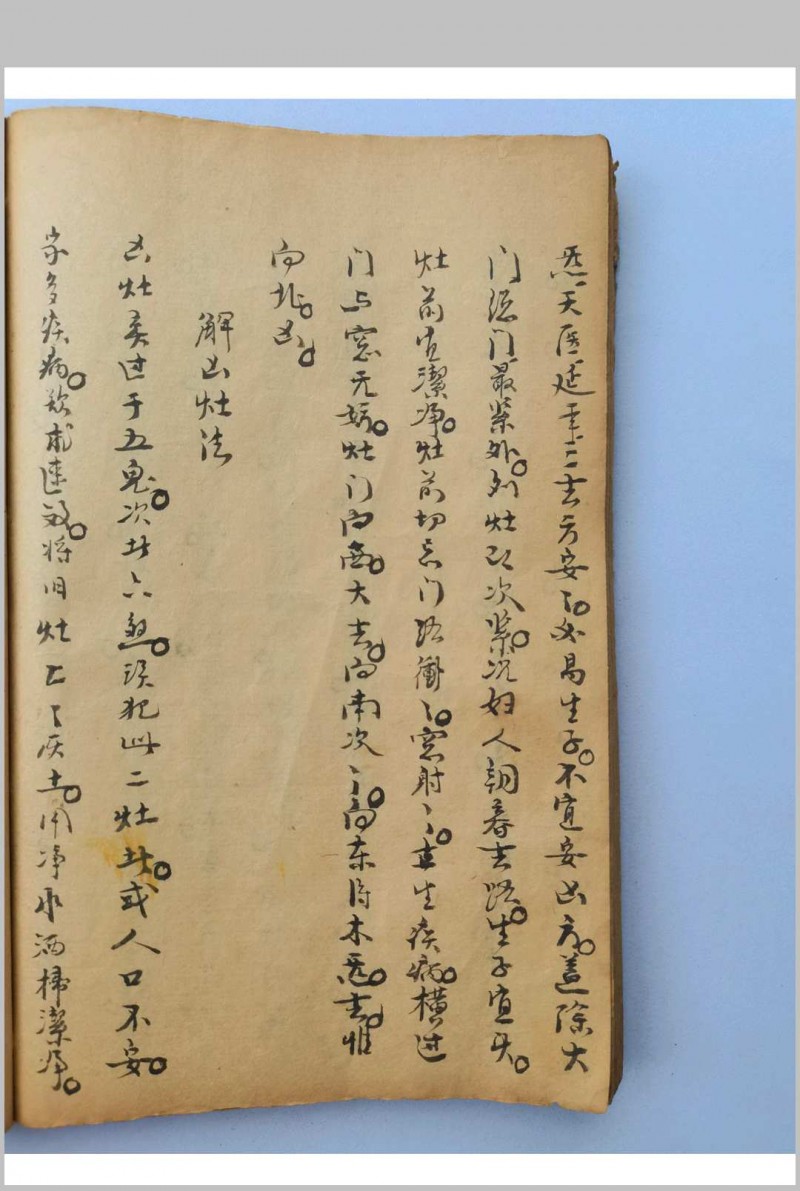 天医延年三吉方安〻。必易生子。不宜安凶方。盖除大
门总门最紧外。列灶又次紧。况妇人朝暮去踏。生子宜矣。
灶前宜潔净。灶前切忌门路衝〻。窓射〻。主生疾病。横过
门与窓无妨。灶门向西。大吉。向南次〻。向东得木。吉。惟
向北。凶。
解凶灶法
凶灶莫过于五鬼。次廿六煞。误犯此二灶廿。或人口不安。
家多疾病。欲求速效。将旧灶上〻灰土。用净水洒掃潔净。